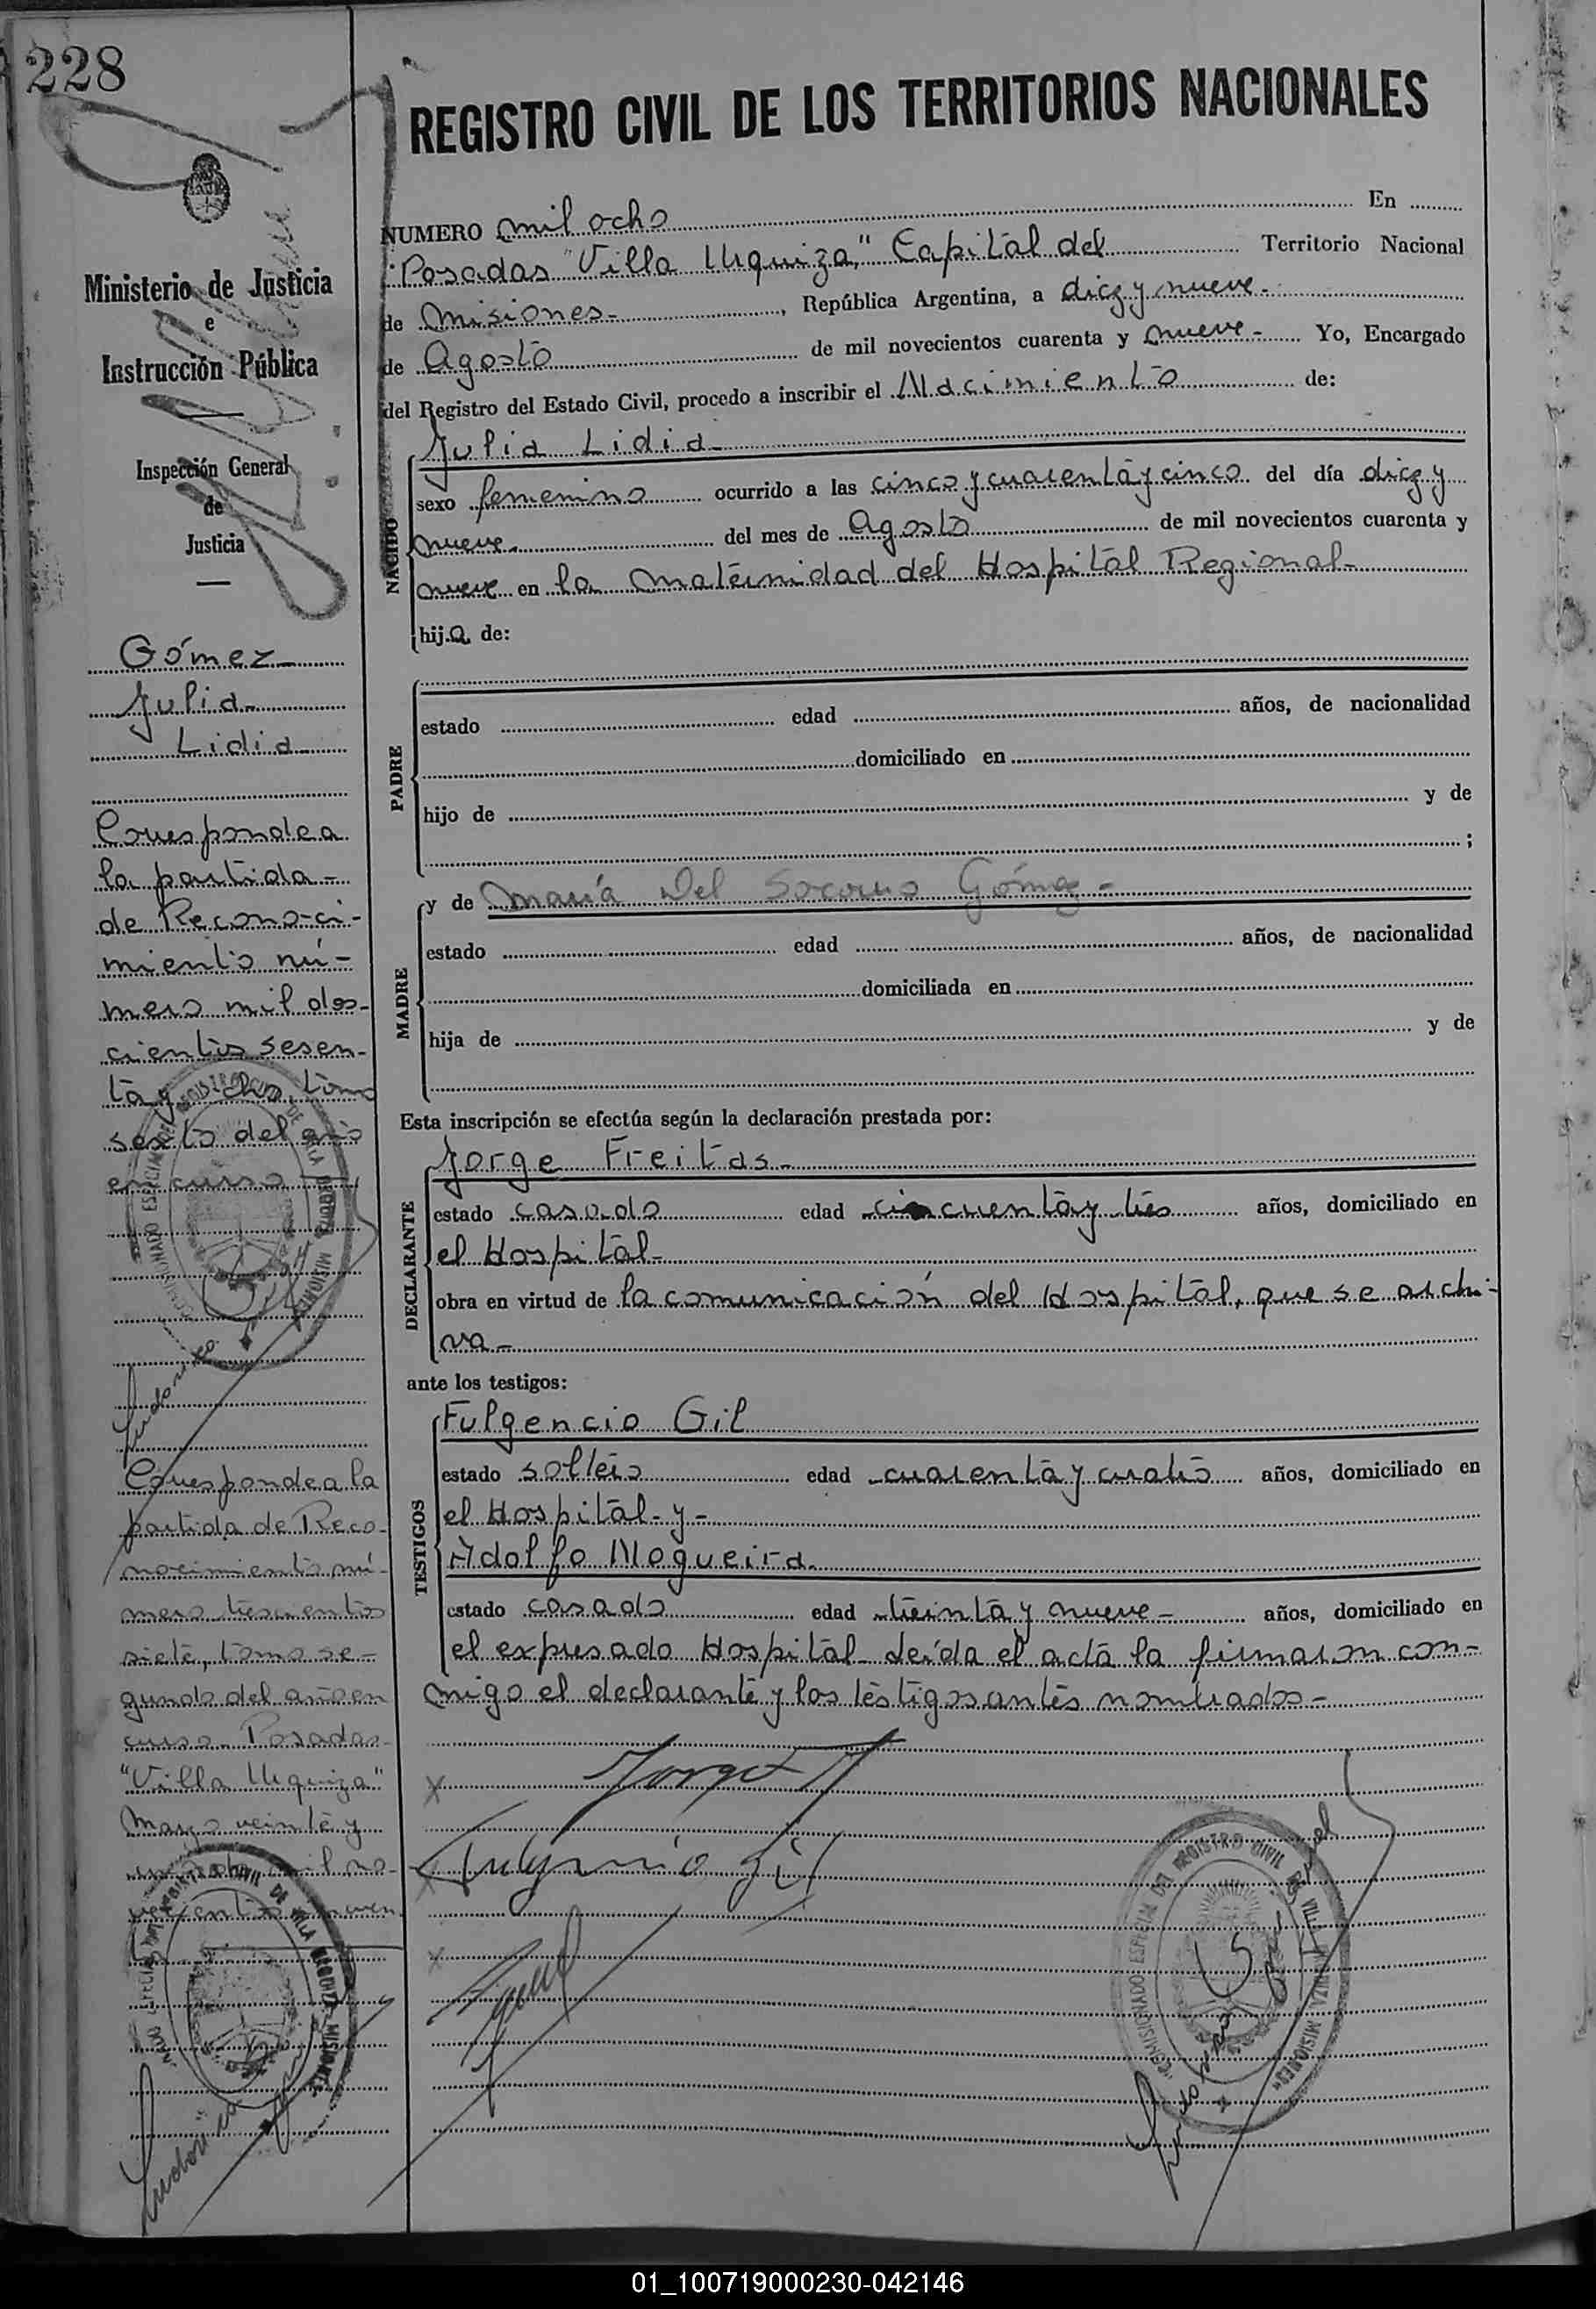 228
Ministerio de Justicia
e
Instrucción Pública
Inspección General
de
Justicia
Gómez
Julia
Lidia
Corresponde a
la partida
de Reconoci-
miento nú-
mero mil dos-
cientos sesen-
ta y ocho, tomo
sexto del año
en curso
Corresponde a la
partida de Reco-
nocimiento nú-
mero trescientos
siete, tomo se-
gundo del año en
curso. Posadas
"Villa Urquiza"
Marzo veinte y
mil no-
vecientos cincuen
REGISTRO CIVIL DE LOS TERRITORIOS NACIONALES
NUMERO mil ocho En
Posadas "Villa Urquiza," Capital del Territorio Nacional
de Misiones-, República Argentina, a diez y nueve-
de Agosto de mil novecientos cuarenta y nueve- Yo, Encargado
del Registro del Estado Civil, procedo a inscribir el Nacimiento de:
Julia Lidia-
NACIDO
sexo femenino ocurrido a las cinco y cuarenta y cinco del día diez y
nueve- del mes de Agosto de mil novecientos cuarenta y
nueve en la Maternidad del Hospital Regional-
hija de:
PADRE
estado edad años, de nacionalidad
domiciliado en
hijo de y de
;
y de María Del Socorro Gómez-
MADRE
estado edad años, de nacionalidad
domiciliada en
hija de y de
Esta inscripción se efectúa según la declaración prestada por:
Jorge Freitas-
DECLARANTE
estado casado edad cincuenta y tres años, domiciliado en
el Hospital-
obra en virtud de la comunicación del Hospital, que se archi-
va-
ante los testigos:
Fulgencio Gil
TESTIGOS
estado soltero edad cuarenta y cuatro años, domiciliado en
el Hospital- y-
Adolfo Nogueira-
estado casado edad treinta y nueve- años, domiciliado en
el expresado Hospital- Leída el acta la firmaron con-
migo el declarante y los testigos antes nombrados-
Fulgencio Gil
COMISIONADO ESPECIAL DEL REGISTRO CIVIL DE VILLA URQUIZA MISIONES
01_100719000230-042146